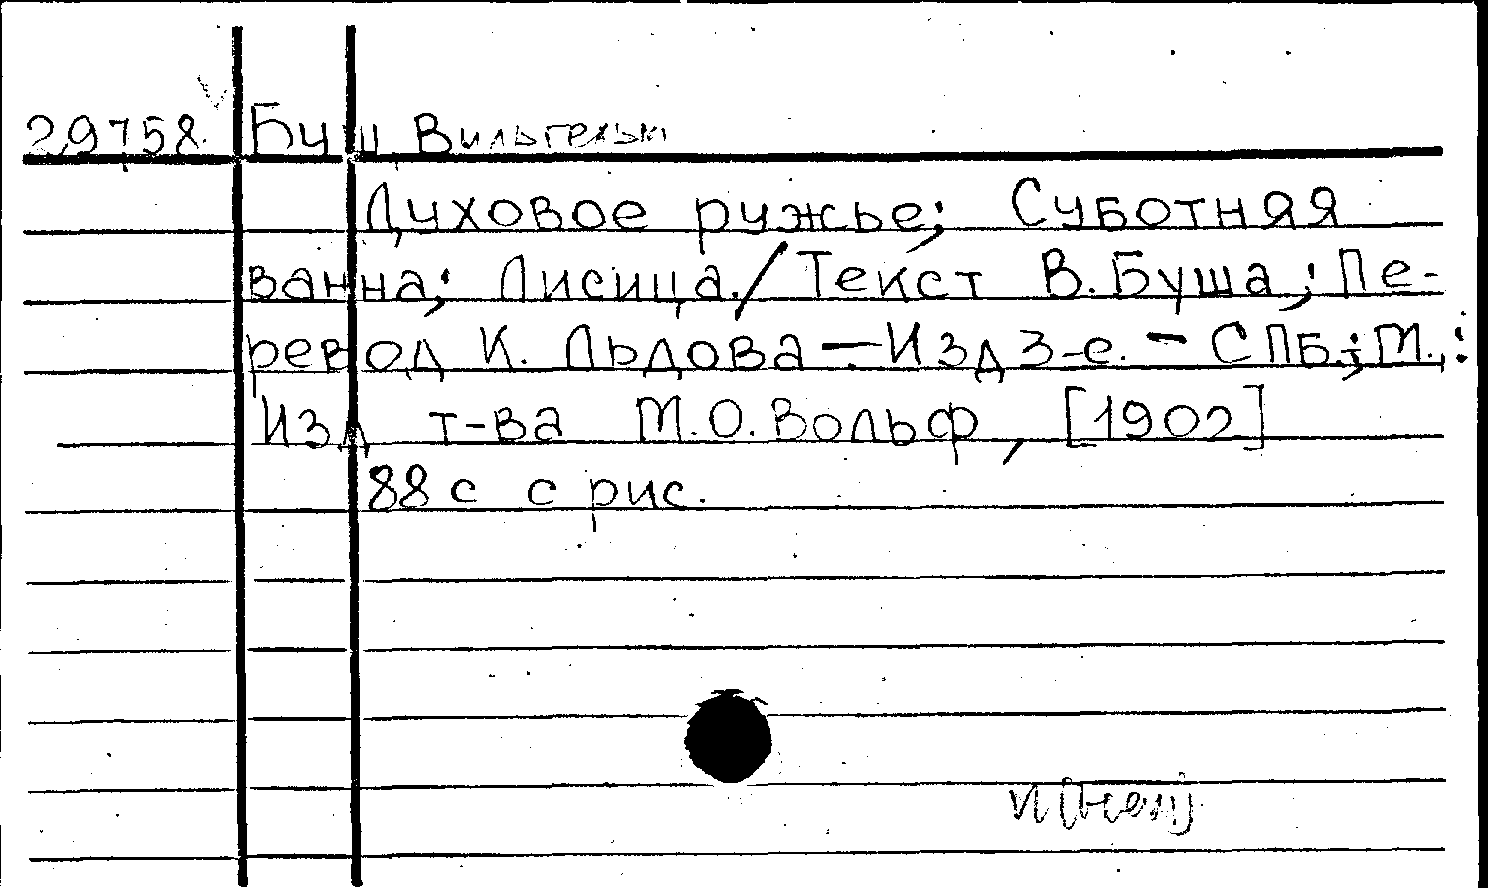 29758 Буш Вильгельм
Духовое ружье; Суботняя
ванна; Лисица./Текст В.Буша; Пе-
ревод К. Льдова — Изд 3-е. - СПБ.; М.:
Изд т-ва М.О.Вольф, [1902]
88 с с рис.